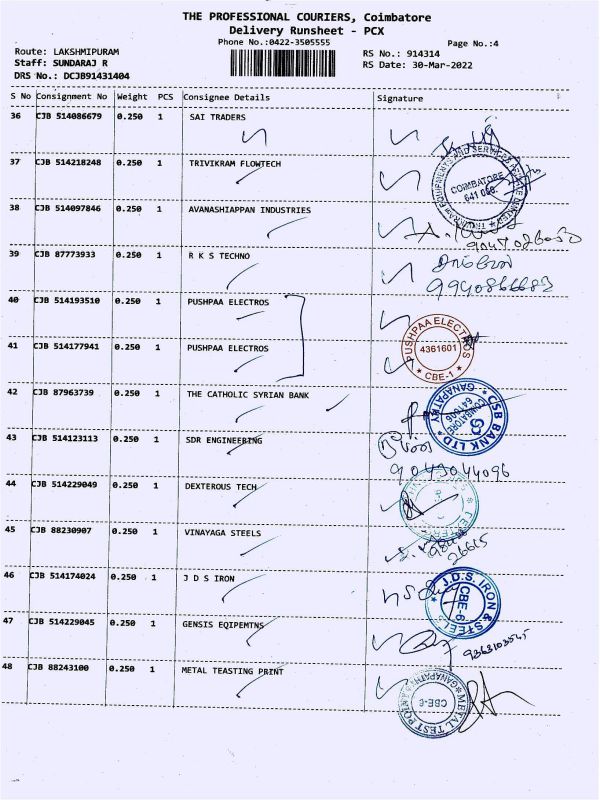 THE PROFESSIONAL COURIERS, Coimbatore
Delivery Runsheet - PCX
Phone No.:0422-3505555
Page No.:4
Route: LAKSHMIPURAM
RS No.: 914314
Staff: SUNDARAJ R
RS Date: 30-Mar-2022
DRS No.: DCJB91431404
S No Consignment No Weight PCS Consignee Details Signature
36 CJB 514086679 0.250 1 SAI TRADERS
37 CJB 514218248 0.250 1 TRIVIKRAM FLOWTECH
COIMBATORE
641 006.
38 CJB 514097846 0.250 1 AVANASHIAPPAN INDUSTRIES
39 CJB 87773933 0.250 1 R K S TECHNO
40 CJB 514193510 0.250 1 PUSHPAA ELECTROS
41 CJB 514177941 0.250 1 PUSHPAA ELECTROS
PUSHPAA ELECTROS
4361601
* CBE-1 *
42 CJB 87963739 0.250 1 THE CATHOLIC SYRIAN BANK
CSB BANK LTD
GANAPATHY
COIMBATORE
641006
43 CJB 514123113 0.250 1 SDR ENGINEERING
9043044096
44 CJB 514229049 0.250 1 DEXTEROUS TECH
45 CJB 88230907 0.250 1 VINAYAGA STEELS
26615
46 CJB 514174024 0.250 1 J D S IRON
J.D.S. IRON & STEELS
CBE-6
47 CJB 514229045 0.250 1 GENSIS EQIPEMTNS
9363103545
48 CJB 88243100 0.250 1 METAL TEASTING PRINT
METAL TEST POINT
GANAPATHY
CBE-6